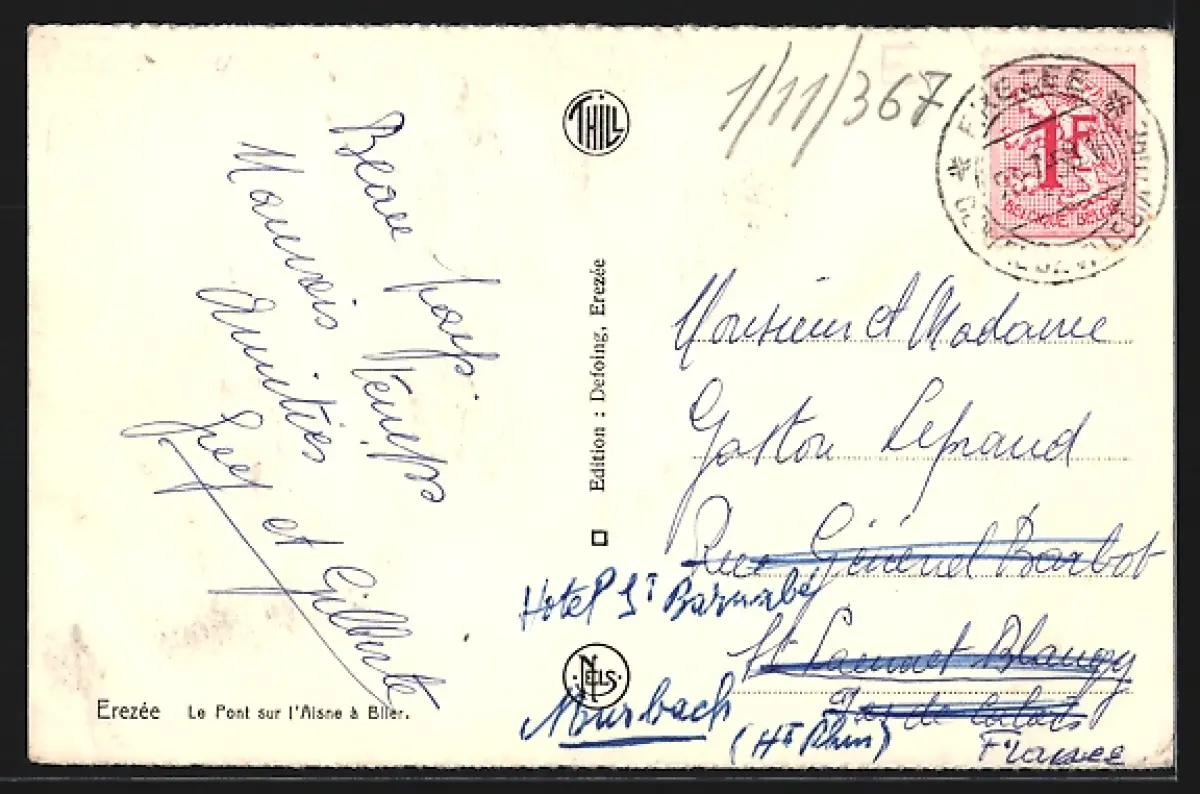 Beau pays
Mauvais Temps
Amitiés
Guy et Gilberte
Erezée Le Pont sur l'Aisne à Blier.
THILL
Edition : Defoing, Erezée
NELS
1/11/367
EREZEE
1F
BELGIQUE BELGIE
Monsieur et Madame
Gaston Legrand
Rue Général Barbot
St Laurent Blangy
Pas de Calais
France
Hotel St Barnabé
Murbach
(Ht Rhin)